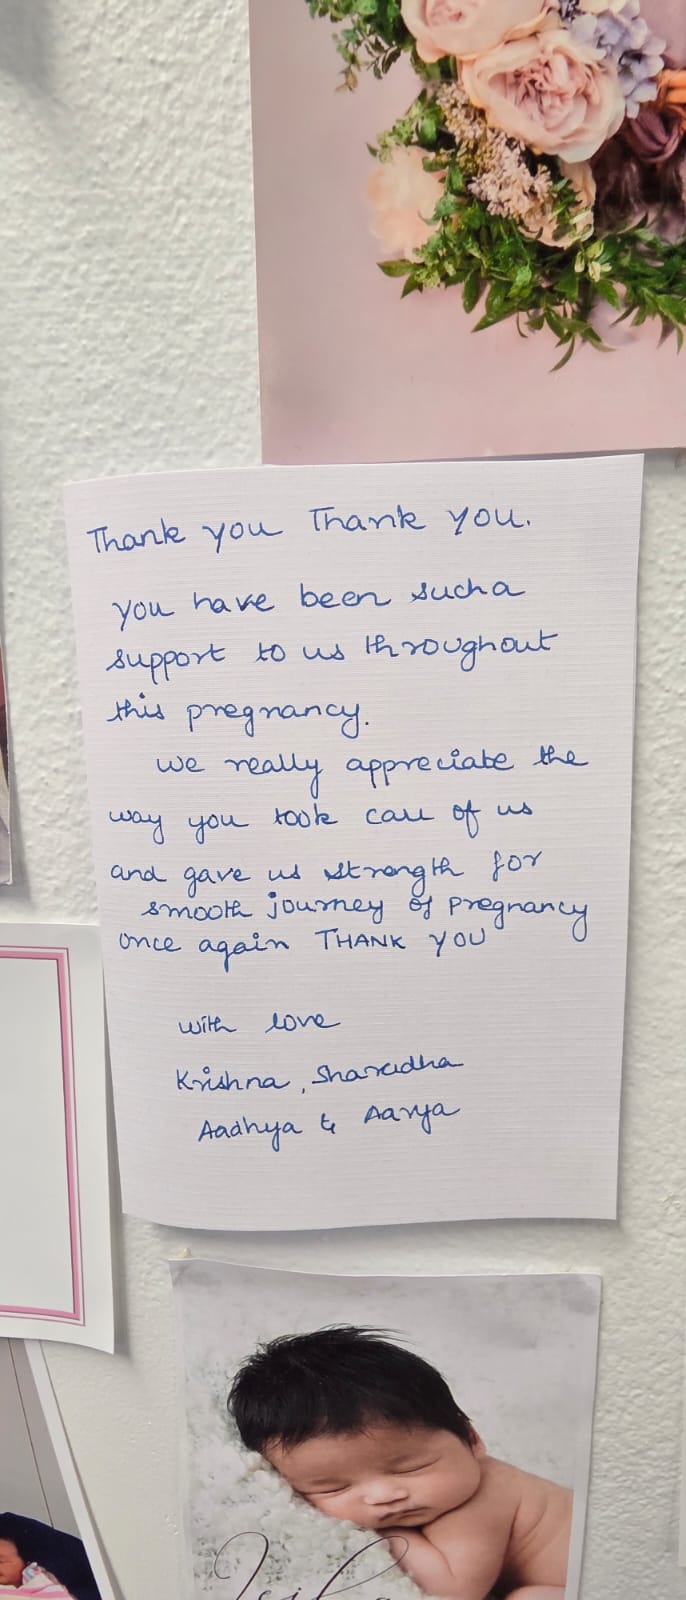 Thank you Thank you.
you have been such a
support to us throughout
this pregnancy.
we really appreciate the
way you took care of us
and gave us strength for
smooth journey of pregnancy
once again THANK YOU
with love
Krishna, Sharadha
Aadhya & Aarya